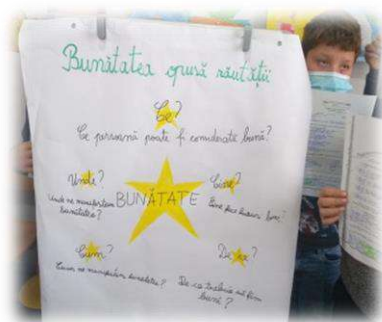 Bunătatea opusă răutății
Ce?
Ce persoană poate fi considerată bună?
Unde?
Unde ne manifestăm
bunătatea?
BUNĂTATE
Cine?
Cine face lucruri bune?
Cum?
Cum ne manifestăm bunătatea?
De ce?
De ce trebuie să fim
buni?